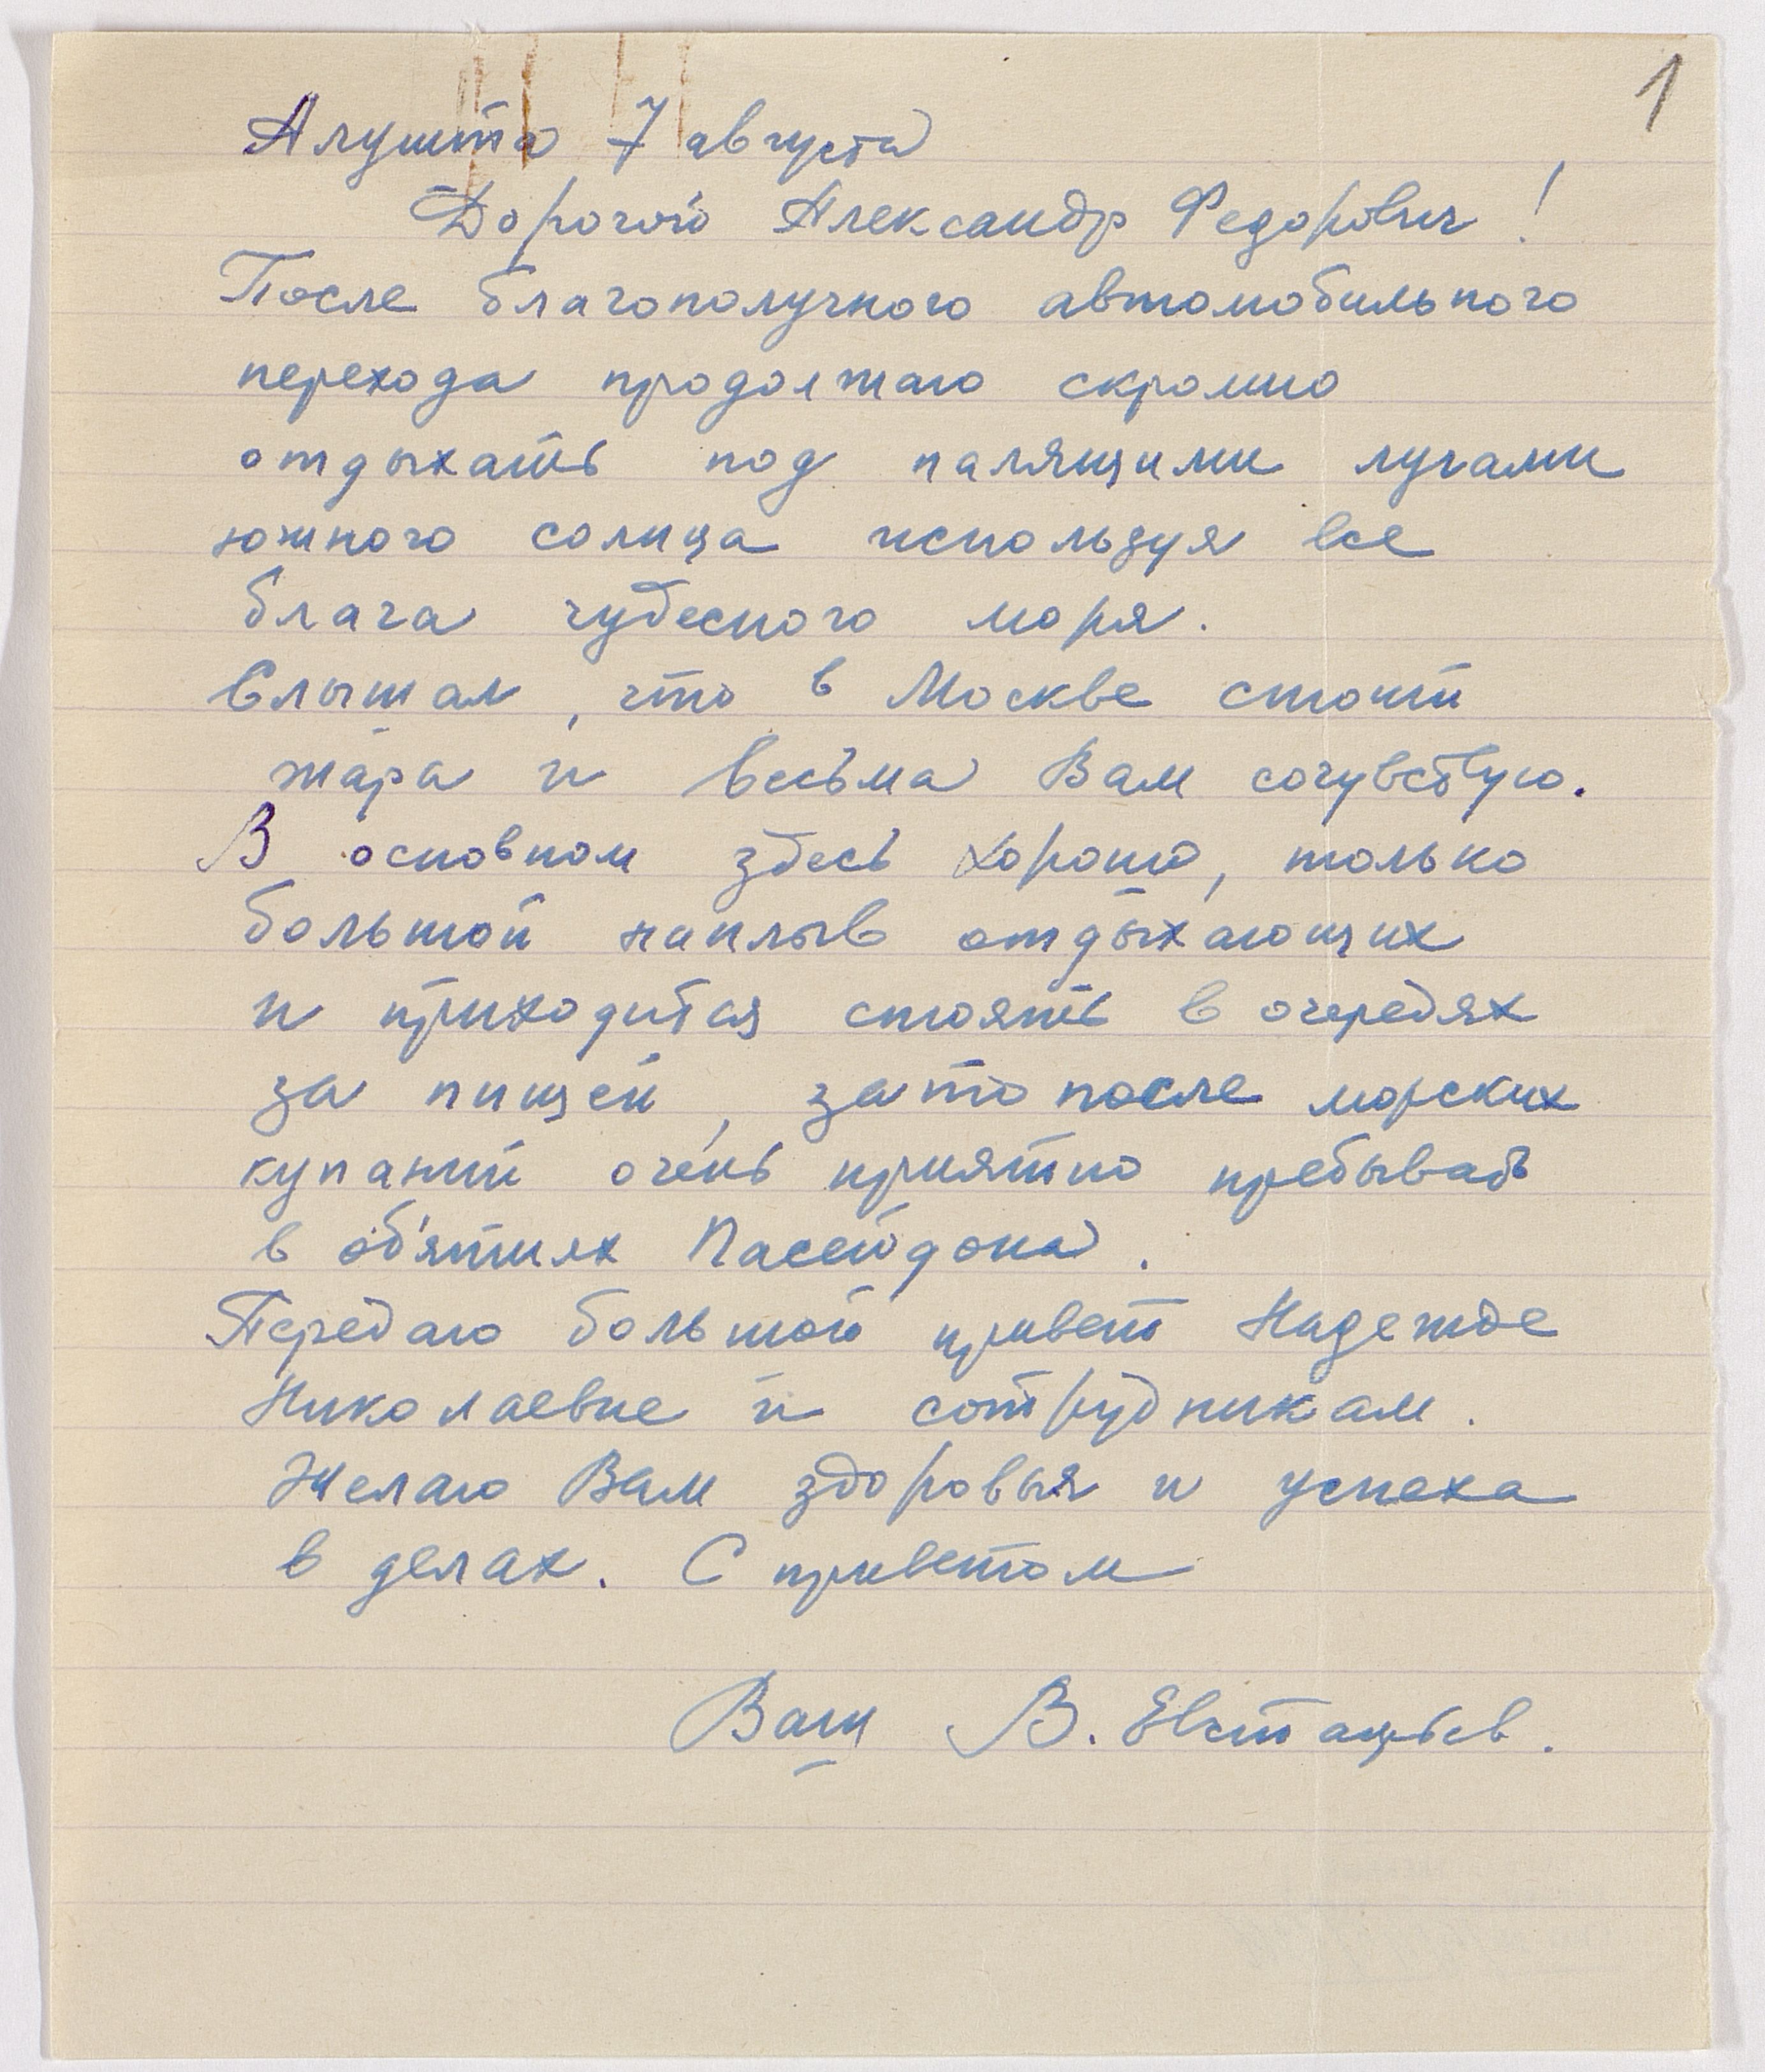 1
Алушта 7 августа
Дорогой Александр Федорович!
После благополучного автомобильного
перехода продолжаю скромно
отдыхать под палящими лучами
южного солнца используя все
блага чудесного моря.
Слышал, что в Москве стоит
жара и весьма Вам сочувствую.
В основном здесь хорошо, только
большой наплыв отдыхающих
и приходится стоять в очередях
за пищей, зато после морских
купаний очень приятно пребывать
в об'ятиях Пасейдона.
Передаю большой привет Надежде
Николаевне и сотрудникам.
Желаю Вам здоровья и успеха
в делах. С приветом
Ваш В.